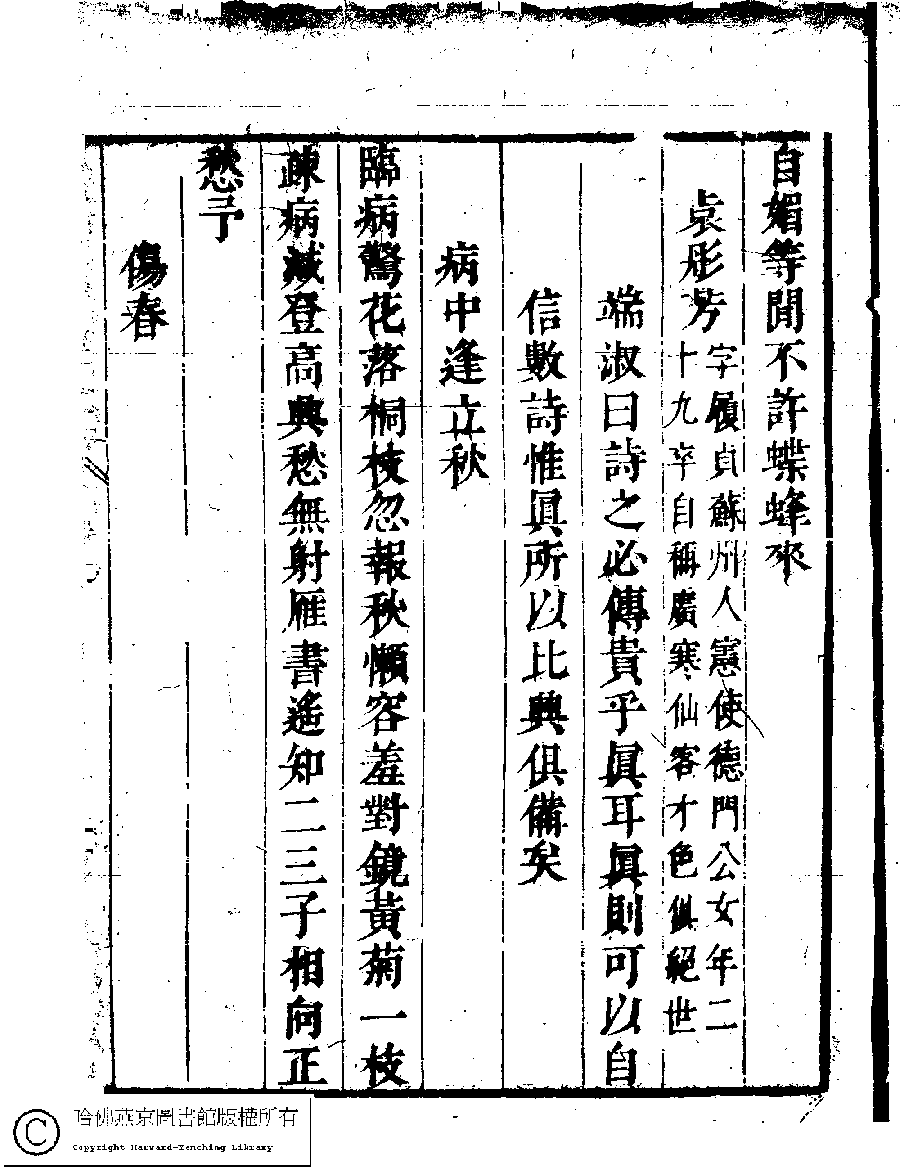 自媚等閒不許蝶蜂來
袁彤芳
字履貞蘇州人憲使德門公女年二
十九卒自稱廣寒仙客才色俱絕世
端淑曰詩之必傳貴乎眞耳眞則可以自
信數詩惟眞所以比興俱備矣
病中逢立秋
臨病驚花落桐枝忽報秋懶容羞對鏡黃菊一枝
疎病減登高興愁無射雁書遙知二三子相向正
愁予
傷春
哈佛燕京圖書館版權所有
Copyright Harvard-Yenching Library